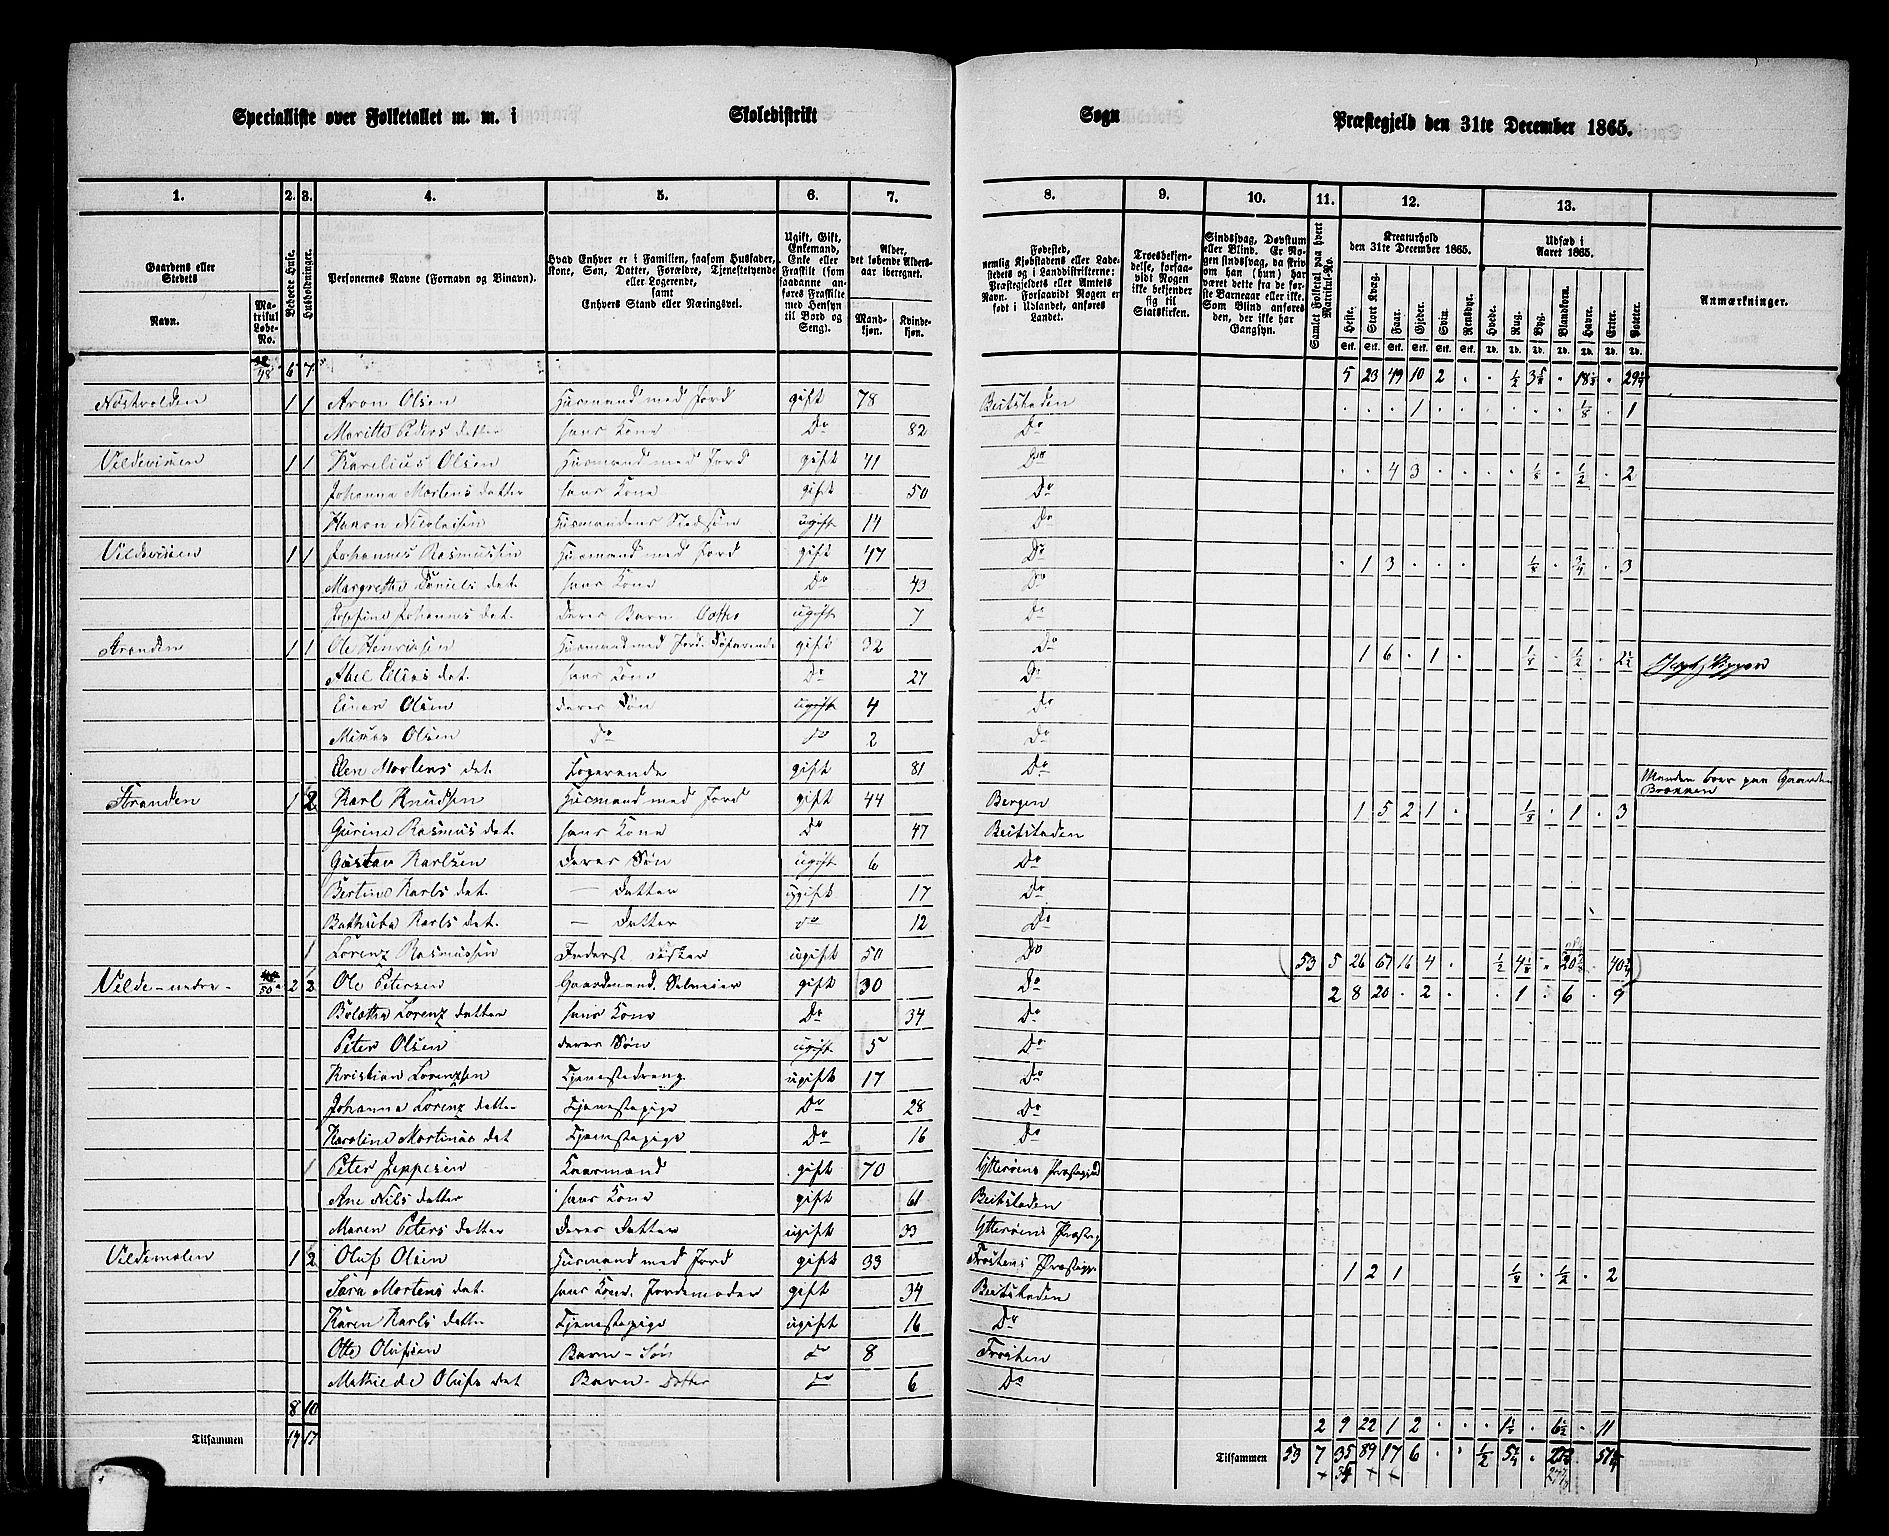 Specialliste over Folketallet m. m. i Skoledistrikt Sogn Præstegjeld den 31te December 1865.
1. 2. 3. 4. 5. 6. 7. 8. 9. 10. 11. 12. 13.
Gaardens eller Stedets Navn. Matrikul Løbe-No. Beboede Huse. Husholdninger. Personernes Navne (Fornavn og Binavn).
Hvad Enhver er i Familien, saasom Husfader, Kone, Søn, Datter, Forældre, Tjenestetyende eller Logerende, samt Enhvers Stand eller Næringsvei.
Ugift, Gift, Enkemand, Enke eller Fraskilt (som saadanne anføres Fraskilte med Hensyn til Bord og Seng).
Alder, det løbende Aldersaar iberegnet. Mandkjøn. Kvindekjøn.
Fødested, nemlig Kjøbstadens eller Ladestedets og i Landdistrikterne: Præstegjeldets eller Amtets Navn. Forsaavidt Nogen er født i Udlandet, anføres Landet.
Troesbekjendelse, forsaavidt Nogen ikke bekjender sig til Statskirken.
Sindssvag, Døvstum eller Blind. Er Nogen sindssvag, da skrives om han (hun) har været dette fra de første Barneaar eller ikke. Som Blind anføres den, der ikke har Gangsyn.
Samlet Folketal paa hvert Matrikul-No.
Kreaturhold den 31te December 1865. Heste. Stort Kvæg. Faar. Gjeder. Svin. Rensdyr.
Udsæd i Aaret 1865. Hvede. Rug. Byg. Blandkorn. Havre. Erter. Poteter.
Anmærkninger.
48 6 7 5 23 49 10 2
Næstvolden 1 1 Aron Olsen Husmand med Jord gift 78 Beitstaden 1 1/8 1
Maritte Peders datter hans Kone Do 82 Do
Veldevinen 1 1 Karelius Olsen Husmand med Jord gift 41 Do 4 3 1/8 1/2 2
Johanna Mortens datter hans Kone gift 50 Do
Nicolaisen Husmandens Stedsøn ugift 14 Do
1 1 Johannes Rasmussen Husmand med Jord gift 47 Do 1 3 1/8 3/4 3
Margrethe Daniels dat. hans Kone Do 43 Do
Josefine Johannes dat. deres Barn Datter ugift 7 Do
Stranden 1 1 Ole Henriksen Husmand med Jord gift 32 Do 1 6 1 1/8 1/2
Abel Elias dat. hans Kone Do 27 Do
Einar Olsen deres Søn ugift 4 Do
Olsen do do 2 Do
Elen Mortens dat. Logerende gift 81 Do Manden boer paa Gaarden
Stranden 1 2 Karl Knudsen Husmand med Jord gift 44 Bergen 1 5 2 1 1/8 1 3
Gurine Rasmus dat. hans Kone Do 47 Beitstaden
Gustav Karlsen deres Søn ugift 6 Do
Bertine Karls dat. — Datter ugift 17 Do
Bathseba Karls dat. — Datter do 12 Do
1 Lorenz Rasmussen Inderst ugift 50 Do 53 5 26 67 16 4
Velde-nedre- 50 2 2 Ole Petersen Gaardmand. Selveier gift 30 Do 2 8 20 2 1 6 9
Lorenz datter hans Kone Do 34 Do
Peter Olsen deres Søn ugift 5 Do
Kristian Lorenzsen Tjenestedreng ugift 17 Do
Johanna Lorenz datter Tjenestepige Do 28 Do
Karoline Martinus dat Tjenestepige Do 16 Do
1 Peter Jeppesen Kaarmand gift 70 Ytterøens
Ane Nils datter hans Kone gift 61 Beitstaden
Maren Peters datter deres Datter ugift 33 Ytterøens
Veldemoen 1 2 Oluf Olsen Husmand med Jord gift 33 Frostens 1 2 1 1/8 1/2 2
Sara Mortens dat. hans Kone. Jordemoder gift 34 Beitstaden
Karen Karls datter Tjenestepige ugift 16 Do
Otto Olufsen Barn - Søn do 8 Frosten
Mathilde Olufs dat Barn - Datter do 6 Do
8 10 2 9 22 1 2 11
Tilsammen 14 17 Tilsammen 53 7 35 89 17 6 1/2
34